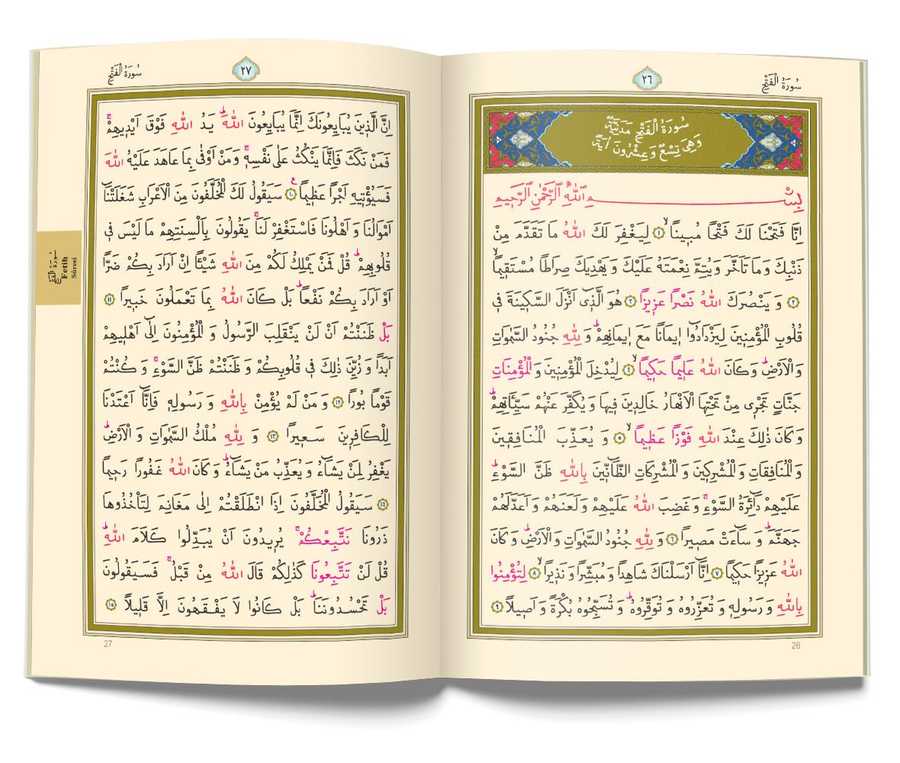 سُورَةُ الْفَتْحِ
٢٦
سُورَةُ الْفَتْحِ مَدَنِيَّةٌ
وَهِيَ تِسْعٌ وَعِشْرُونَ اٰيَةً
بِسْمِ اللّٰهِ الرَّحْمٰنِ الرَّحِيمِ
اِنَّا فَتَحْنَا لَكَ فَتْحًا مُبِينًاۙ ﴿١﴾ لِيَغْفِرَ لَكَ اللّٰهُ مَا تَقَدَّمَ مِنْ
ذَنْبِكَ وَمَا تَاَخَّرَ وَيُتِمَّ نِعْمَتَهُ عَلَيْكَ وَيَهْدِيَكَ صِرَاطًا مُسْتَقِيمًاۙ
﴿٢﴾ وَ يَنْصُرَكَ اللّٰهُ نَصْرًا عَزِيزًا ﴿٣﴾ هُوَ الَّذِٓي اَنْزَلَ السَّكِينَةَ فِي
قُلُوبِ الْمُؤْمِنِينَ لِيَزْدَادُٓوا اِيمَانًا مَعَ اِيمَانِهِمْۜ وَ لِلّٰهِ جُنُودُ السَّمٰوَاتِ
وَ الْاَرْضِۜ وَ كَانَ اللّٰهُ عَلِيمًا حَكِيمًاۙ ﴿٤﴾ لِيُدْخِلَ الْمُؤْمِنِينَ وَ الْمُؤْمِنَاتِ
جَنَّاتٍ تَجْرِي مِنْ تَحْتِهَا الْاَنْهَارُ خَالِدِينَ فِيهَا وَ يُكَفِّرَ عَنْهُمْ سَيِّـَٔاتِهِمْۜ
وَ كَانَ ذٰلِكَ عِنْدَ اللّٰهِ فَوْزًا عَظِيمًاۙ ﴿٥﴾ وَ يُعَذِّبَ الْمُنَافِقِينَ
وَ الْمُنَافِقَاتِ وَ الْمُشْرِكِينَ وَ الْمُشْرِكَاتِ الظَّٓانِّينَ بِاللّٰهِ ظَنَّ السَّوْءِۜ
عَلَيْهِمْ دَٓائِرَةُ السَّوْءِۚ وَ غَضِبَ اللّٰهُ عَلَيْهِمْ وَ لَعَنَهُمْ وَ اَعَدَّ لَهُمْ
جَهَنَّمَۜ وَ سَٓاءَتْ مَصِيرًا ﴿٦﴾ وَ لِلّٰهِ جُنُودُ السَّمٰوَاتِ وَ الْاَرْضِۜ وَ كَانَ
اللّٰهُ عَزِيزًا حَكِيمًا ﴿٧﴾ اِنَّٓا اَرْسَلْنَاكَ شَاهِدًا وَ مُبَشِّرًا وَ نَذِيرًاۙ ﴿٨﴾ لِتُؤْمِنُوا
بِاللّٰهِ وَ رَسُولِهِ وَ تُعَزِّرُوهُ وَ تُوَقِّرُوهُۜ وَ تُسَبِّحُوهُ بُكْرَةً وَ اَصِيلًا ﴿٩﴾
26
سُورَةُ الْفَتْحِ
٢٧
اِنَّ الَّذِينَ يُبَايِعُونَكَ اِنَّمَا يُبَايِعُونَ اللّٰهَۜ يَدُ اللّٰهِ فَوْقَ اَيْدِيهِمْۚ
فَمَنْ نَكَثَ فَاِنَّمَا يَنْكُثُ عَلٰى نَفْسِهِۚ وَ مَنْ اَوْفٰى بِمَا عَاهَدَ عَلَيْهُ اللّٰهَ
فَسَيُؤْتِيهِ اَجْرًا عَظِيمًا ﴿١٠﴾ سَيَقُولُ لَكَ الْمُخَلَّفُونَ مِنَ الْاَعْرَابِ شَغَلَتْنَٓا
اَمْوَالُنَا وَ اَهْلُونَا فَاسْتَغْفِرْ لَنَاۚ يَقُولُونَ بِاَلْسِنَتِهِمْ مَا لَيْسَ فِي
قُلُوبِهِمْۜ قُلْ فَمَنْ يَمْلِكُ لَكُمْ مِنَ اللّٰهِ شَيْـًٔا اِنْ اَرَادَ بِكُمْ ضَرًّا
اَوْ اَرَادَ بِكُمْ نَفْعًاۜ بَلْ كَانَ اللّٰهُ بِمَا تَعْمَلُونَ خَبِيرًا ﴿١١﴾
بَلْ ظَنَنْتُمْ اَنْ لَنْ يَنْقَلِبَ الرَّسُولُ وَ الْمُؤْمِنُونَ اِلٰٓى اَهْلِيهِمْ
اَبَدًا وَ زُيِّنَ ذٰلِكَ فِي قُلُوبِكُمْ وَ ظَنَنْتُمْ ظَنَّ السَّوْءِۚ وَ كُنْتُمْ
قَوْمًا بُورًا ﴿١٢﴾ وَ مَنْ لَمْ يُؤْمِنْ بِاللّٰهِ وَ رَسُولِهِ فَاِنَّٓا اَعْتَدْنَا
لِلْكَافِرِينَ سَعِيرًا ﴿١٣﴾ وَ لِلّٰهِ مُلْكُ السَّمٰوَاتِ وَ الْاَرْضِۜ
يَغْفِرُ لِمَنْ يَشَٓاءُ وَ يُعَذِّبُ مَنْ يَشَٓاءُۜ وَ كَانَ اللّٰهُ غَفُورًا رَحِيمًا
﴿١٤﴾ سَيَقُولُ الْمُخَلَّفُونَ اِذَا انْطَلَقْتُمْ اِلٰى مَغَانِمَ لِتَأْخُذُوهَا
ذَرُونَا نَتَّبِعْكُمْۚ يُرِيدُونَ اَنْ يُبَدِّلُوا كَلَامَ اللّٰهِۜ
قُلْ لَنْ تَتَّبِعُونَا كَذٰلِكُمْ قَالَ اللّٰهُ مِنْ قَبْلُۚ فَسَيَقُولُونَ
بَلْ تَحْسُدُونَنَاۜ بَلْ كَانُوا لَا يَفْقَهُونَ اِلَّا قَلِيلًا ﴿١٥﴾
27
سورة الفتح
Fetih
Sûresi